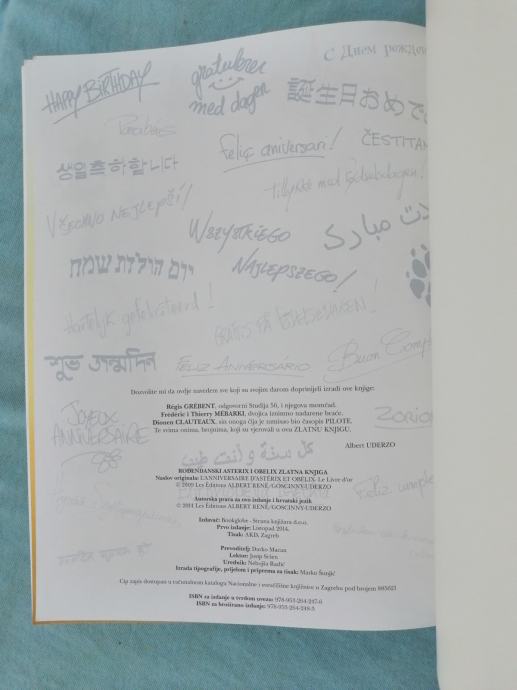 HAPPY BIRTHDAY
gratulerer med dagen
С Днем рожден
誕生日おめで
Parabéns
Feliç aniversari!
ČESTITAM
생일축하합니다
Tillykke med fødselsdagen!
VŠECHNO NEJLEPŠÍ!
WSZYSTKIEGO NAJLEPSZEGO!
مبارك
יום הולדת שמח
Hartelijk gefeliciteerd!
GRATIS PÅ
শুভ জন্মদিন
FELIZ ANIVERSÁRIO
Buon Comp
Dozvolite mi da ovdje navedem sve koji su svojim darom doprinijeli izradi ove knjige:
Régis GRÉBENT, odgovorni Studija 56, i njegova momčad.
Frédéric i Thierry MÉBARKI, dvojica iznimno nadarene braće.
Dionen CLAUTEAUX, sin onoga čija je zamisao bio časopis PILOTE.
Te svima onima, brojnima, koji su vjerovali u ovu ZLATNU KNJIGU.
JOYEUX ANNIVERSAIRE
ZORIO
Albert UDERZO
كل سنة وأنت طيب
ROĐENDANSKI ASTERIX I OBELIX ZLATNA KNJIGA
Naslov originala: L'ANNIVERSAIRE D'ASTÉRIX ET OBÉLIX- Le Livre d'or
© 2009 Les Éditions ALBERT RENÉ/GOSCINNY-UDERZO
Feliz cumple
Autorska prava za ovo izdanje i hrvatski jezik
© 2014 Les Éditions ALBERT RENÉ/GOSCINNY-UDERZO
Izdavač: Bookglobe - Strana knjižara d.o.o.
Prvo izdanje: Listopad 2014.
Tisak: AKD, Zagreb
Prevoditelj: Darko Macan
Lektor: Josip Sršen
Uredio: Nebojša Radić
Izrada tipografije, prijelom i priprema za tisak: Marko Šunjić
Cip zapis dostupan u računalnom katalogu Nacionalne i sveučilišne knjižnice u Zagrebu pod brojem 885623
ISBN za izdanje u tvrdom uvezu: 978-953-264-247-6
ISBN za broširano izdanje: 978-953-264-248-3